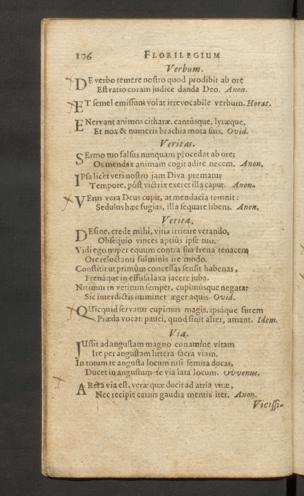 106 FLORILEGIUM
Verbum.
DE verbo temere nostro quod prodibit ab ore
Est ratio coram judice danda Deo. Anon.
ET semel emissum volat irrevocabile verbum. Horat.
ENervant animos citharæ, cantúsque, lyræque,
Et vox & numeris brachia mota suis. Ovid.
Veritas.
SErmo tuo falsus nunquam procedat ab ore;
Os mendax animam cogit adire necem. Anon.
IPsa licet veri nostro jam Diva prematur
Tempore, póst victrix exeret illa caput. Anon.
VEnus vera Deus cupit, at mendacia temnit:
Sedulus hæc fugias, illa sequare libens. Anon.
Vetita.
DEsine, crede mihi, vitia irritare vetando,
Obsequio vinces aptius ipse tuo.
Vidi ego nuper equum contra sua frena tenacem
Ore reluctanti fulminis ire modo.
Constitit ut primùm concessas sensit habenas,
Frenáque in effusa laxa jacere juba.
Nitimur in vetitum semper, cupimúsque negata:
Sic interdictis imminet æger aquis. Ovid.
QUicquid servatur cupimus magis, ipsáque furem
Præda vocat: pauci, quod sinit alter, amant. Idem.
Via.
JUssit ad angustam magno conamine vitam
Ire per angustam littera sacra viam.
In totum te angusta locum nisi semita ducat,
Ducet in angustum te via lata locum. Owenus.
ARcta via est, veræ quæ ducit ad atria vitæ,
Nec recipit carnis gaudia mentis iter. Anon.
Vicissi-